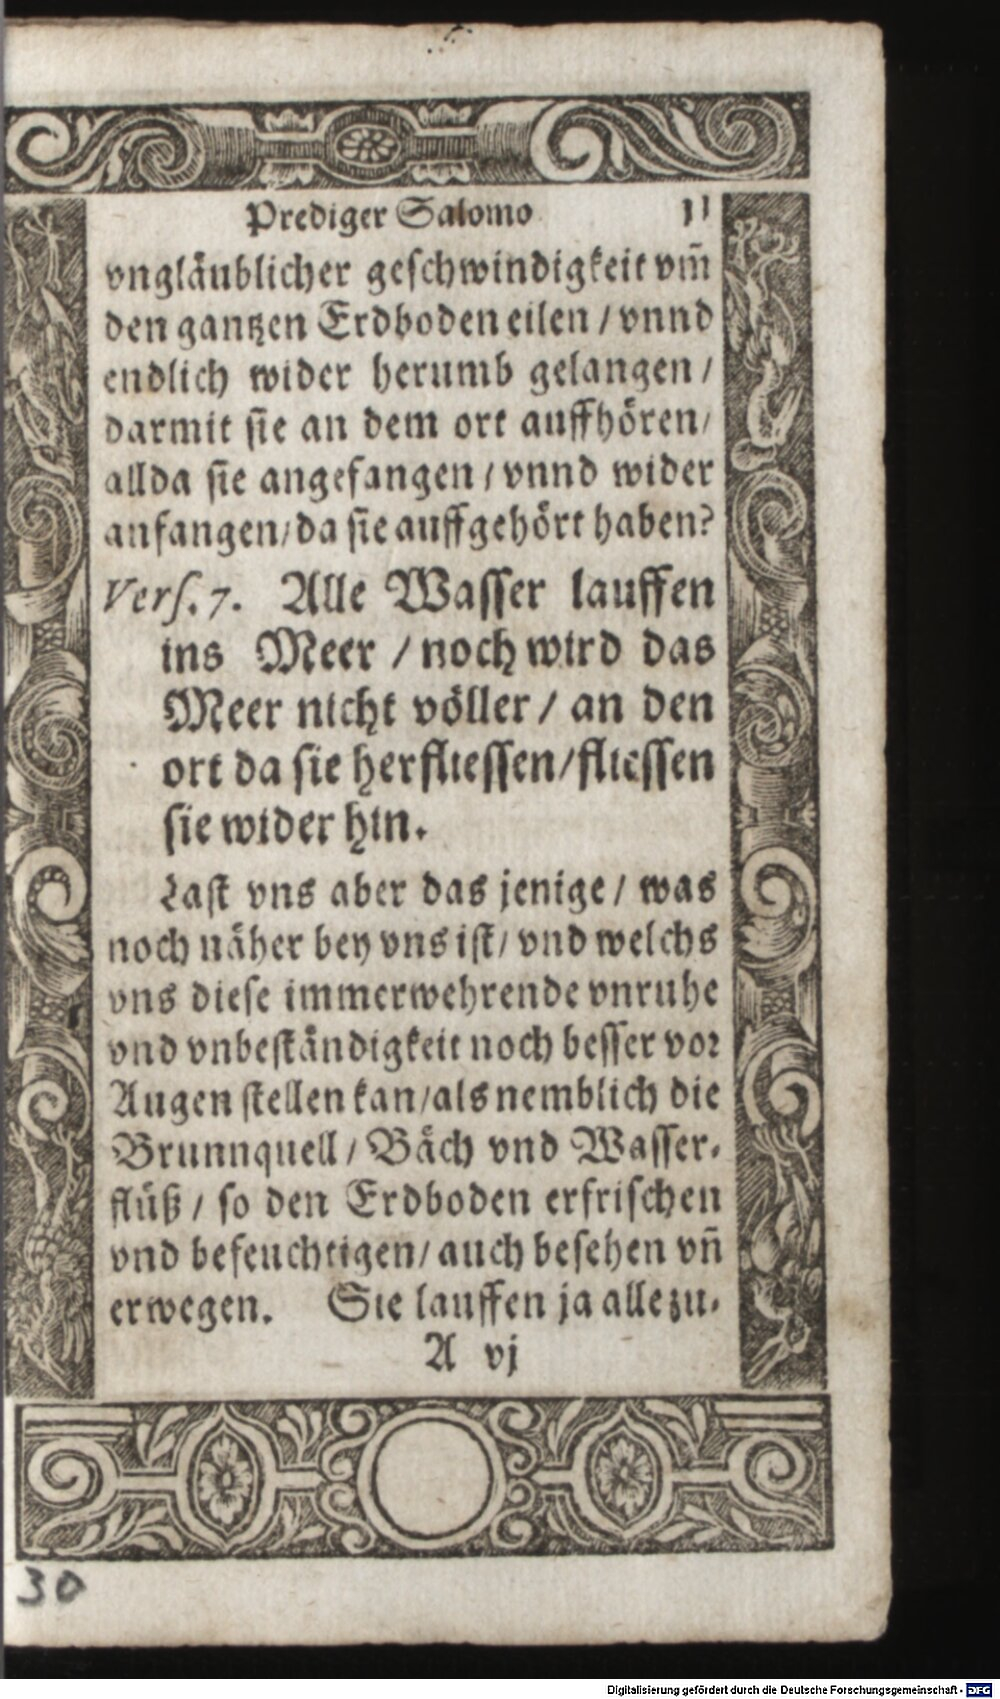 Prediger Salomo 11
vngläublicher geschwindigkeit vm̃
den gantzen Erdboden eilen / vnnd
endlich wider herumb gelangen /
darmit sie an dem ort auffhören /
allda sie angefangen / vnnd wider
anfangen / da sie auffgehört haben?
Vers. 7. Alle Wasser lauffen
ins Meer / noch wird das
Meer nicht völler / an den
ort da sie herfliessen / fliessen
sie wider hin.
Last vns aber das jenige / was
noch näher bey vns ist / vnd welchs
vns diese immerwehrende vnruhe
vnd vnbeständigkeit noch besser vor
Augen stellen kan / als nemblich die
Brunnquell / Bäch vnd Wasser-
flüß / so den Erdboden erfrischen
vnd befeuchtigen / auch besehen vñ
erwegen. Sie lauffen ja allezu-
A vj
30
Digitalisierung gefördert durch die Deutsche Forschungsgemeinschaft - DFG